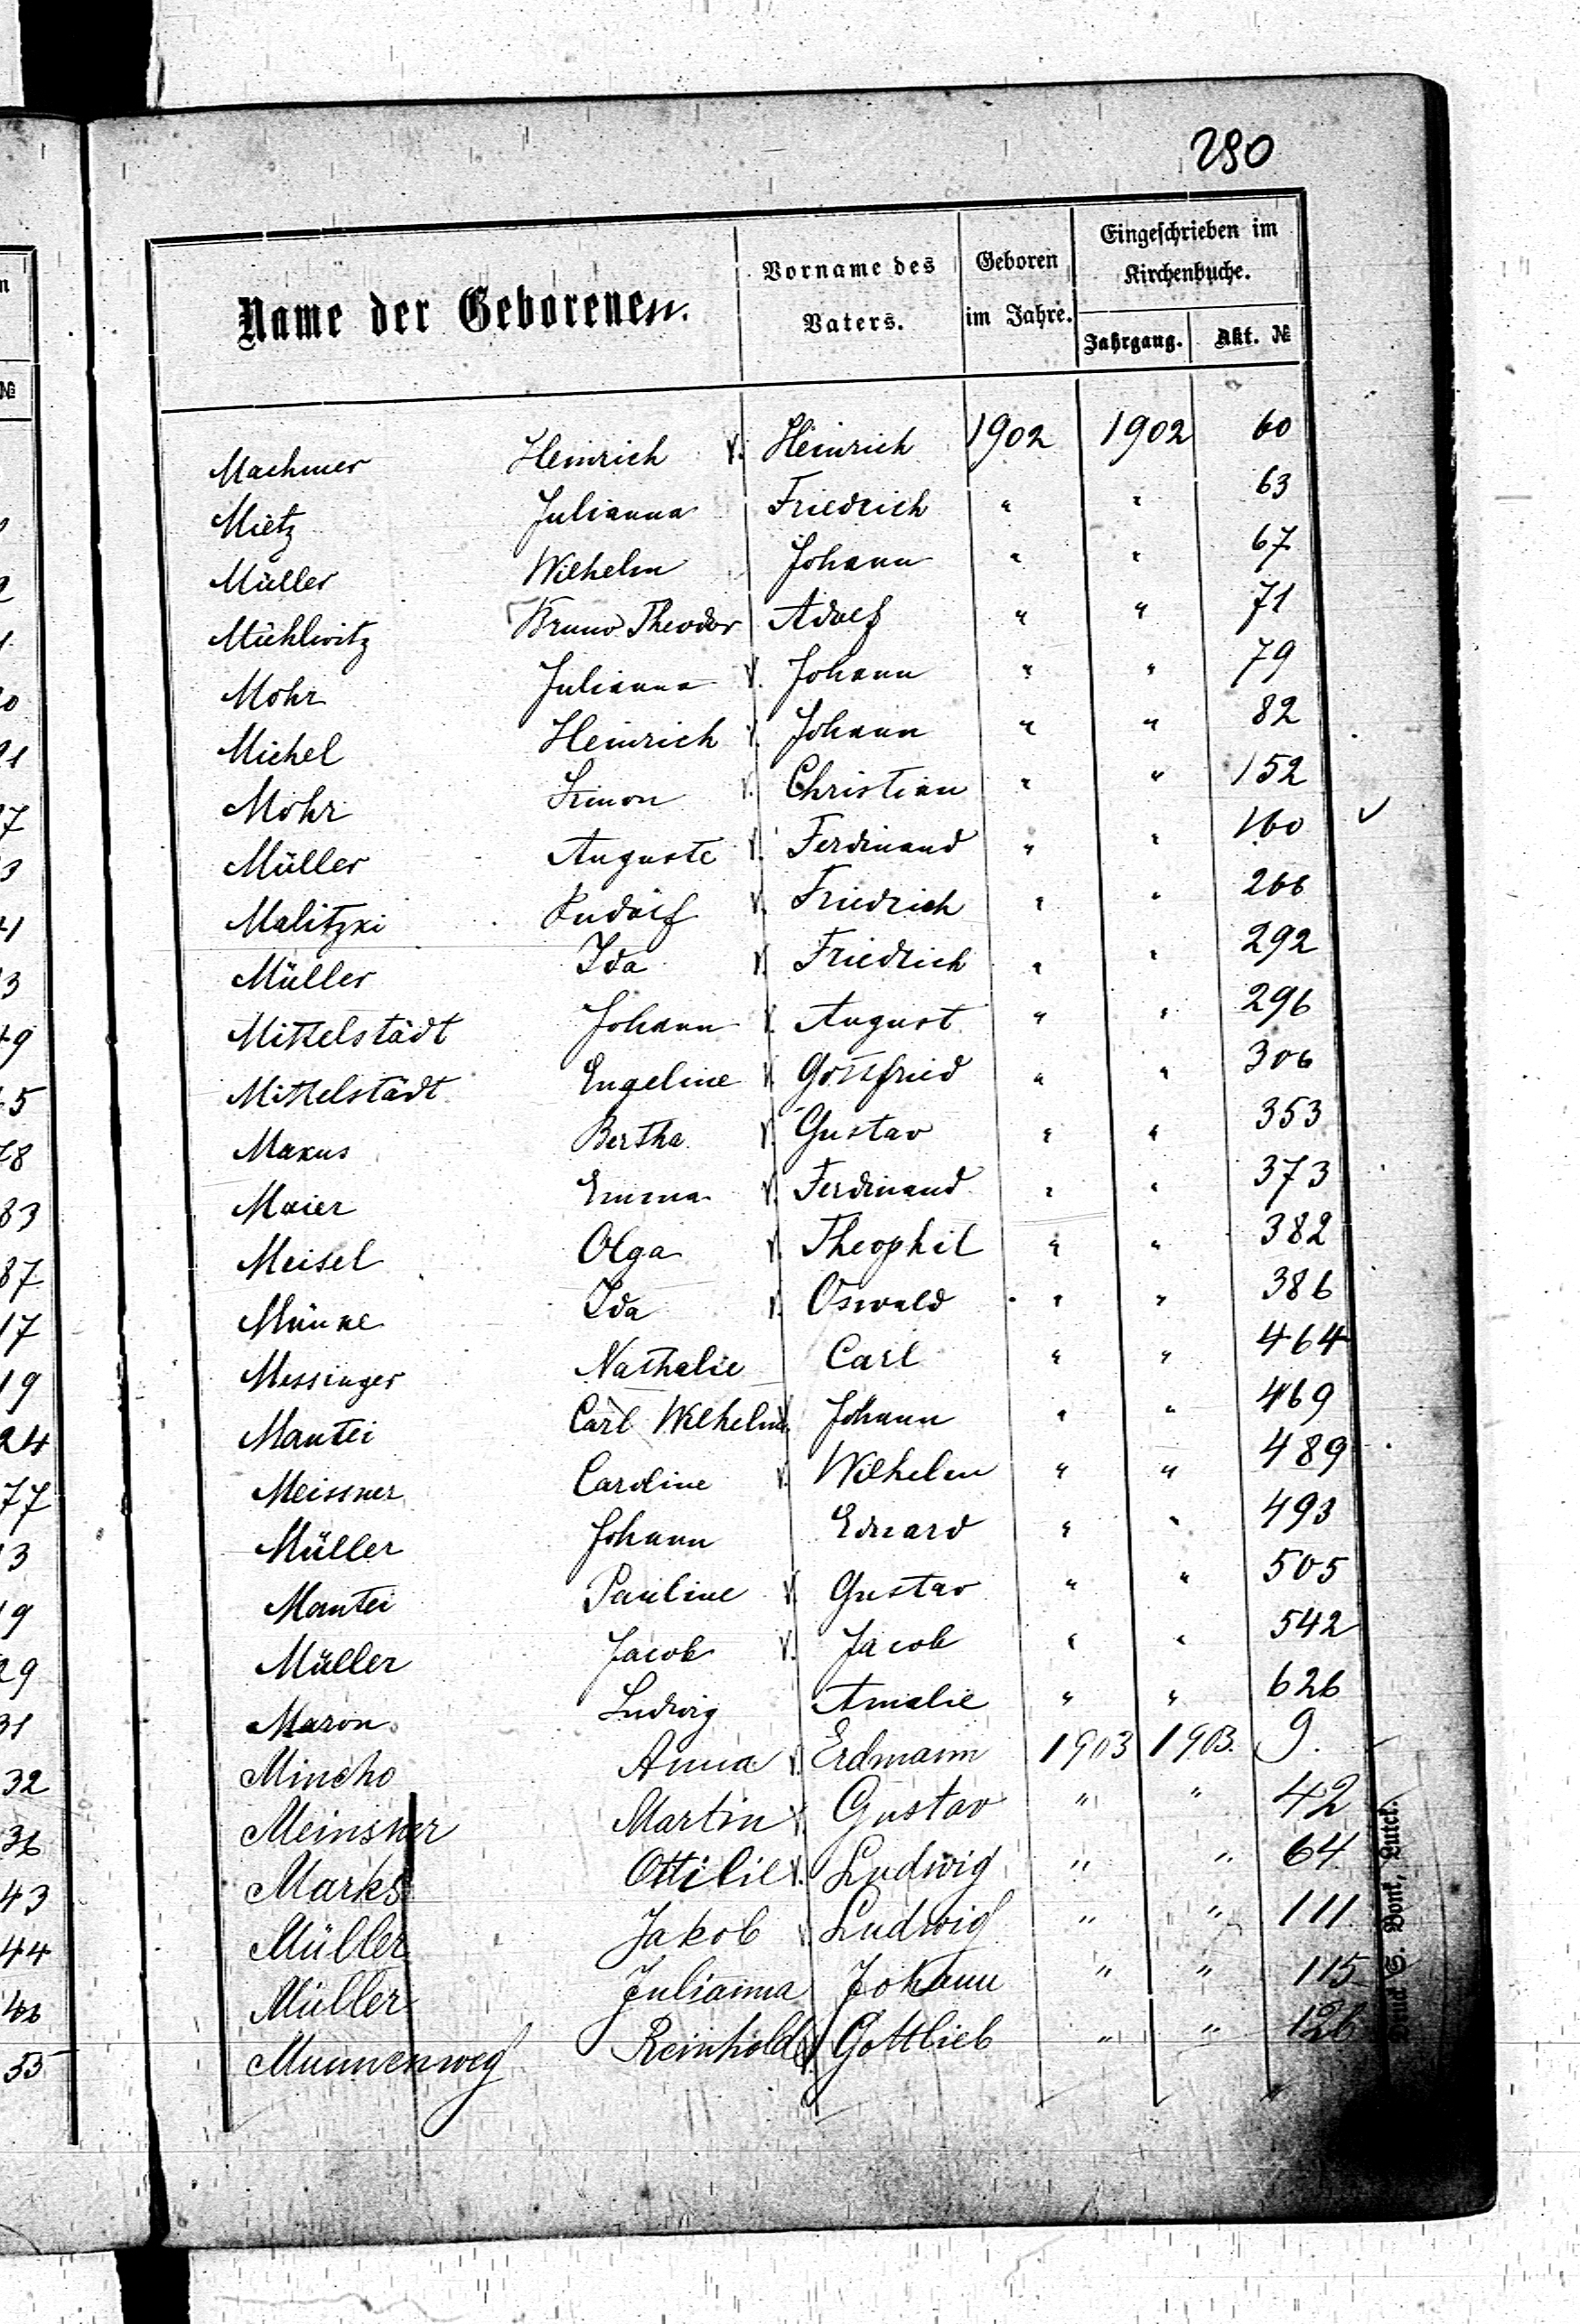 290
Name der Geborenen. Vorname des Vaters. Geboren im Jahre. Eingeschrieben im Kirchenbuche.
Jahrgang. Akt. №
Machmer Heinrich V. Heinrich 1902 1902 60
Mietz Julianna Friedrich " " 63
Müller Wilhelm Johann " " 67
Mühlwitz Bruno Theodor Adolf " " 71
Mohr Julianna V. Johann " " 79
Michel Heinrich V. Johann " " 82
Mohr Simon V. Christian " " 152
Müller Auguste V. Ferdinand " " 160 ✓
Malitzki Rudolf V. Friedrich " " 266
Müller Ida V. Friedrich " " 292
Mittelstädt Johann V. August " " 296
Mittelstädt Engeline V. Gottfried " " 306
Maxus Bertha V. Gustav " " 353
Maier Emma V. Ferdinand " " 373
Meisel Olga V. Theophil " " 382
Münke Ida V. Oswald " " 386
Messinger Nathalie Carl " " 464
Mantei Carl Wilhelm V. Johann " " 469
Meissner Caroline V. Wilhelm " " 489
Müller Johann Eduard " " 493
Mantei Pauline V. Gustav " " 505
Müller Jacob V. Jacob " " 542
Maron Ludwig Amalie " " 626
Mincho Anna V. Erdmann 1903 1903. 9.
Meinsner Martin V. Gustav " " 42
Marks Ottilie V. Ludwig " " 64
Müller Jakob V. Ludwig " " 111
Müller Julianna Johann " " 115
Munnenweg Reinhold V. Gottlieb " " 126